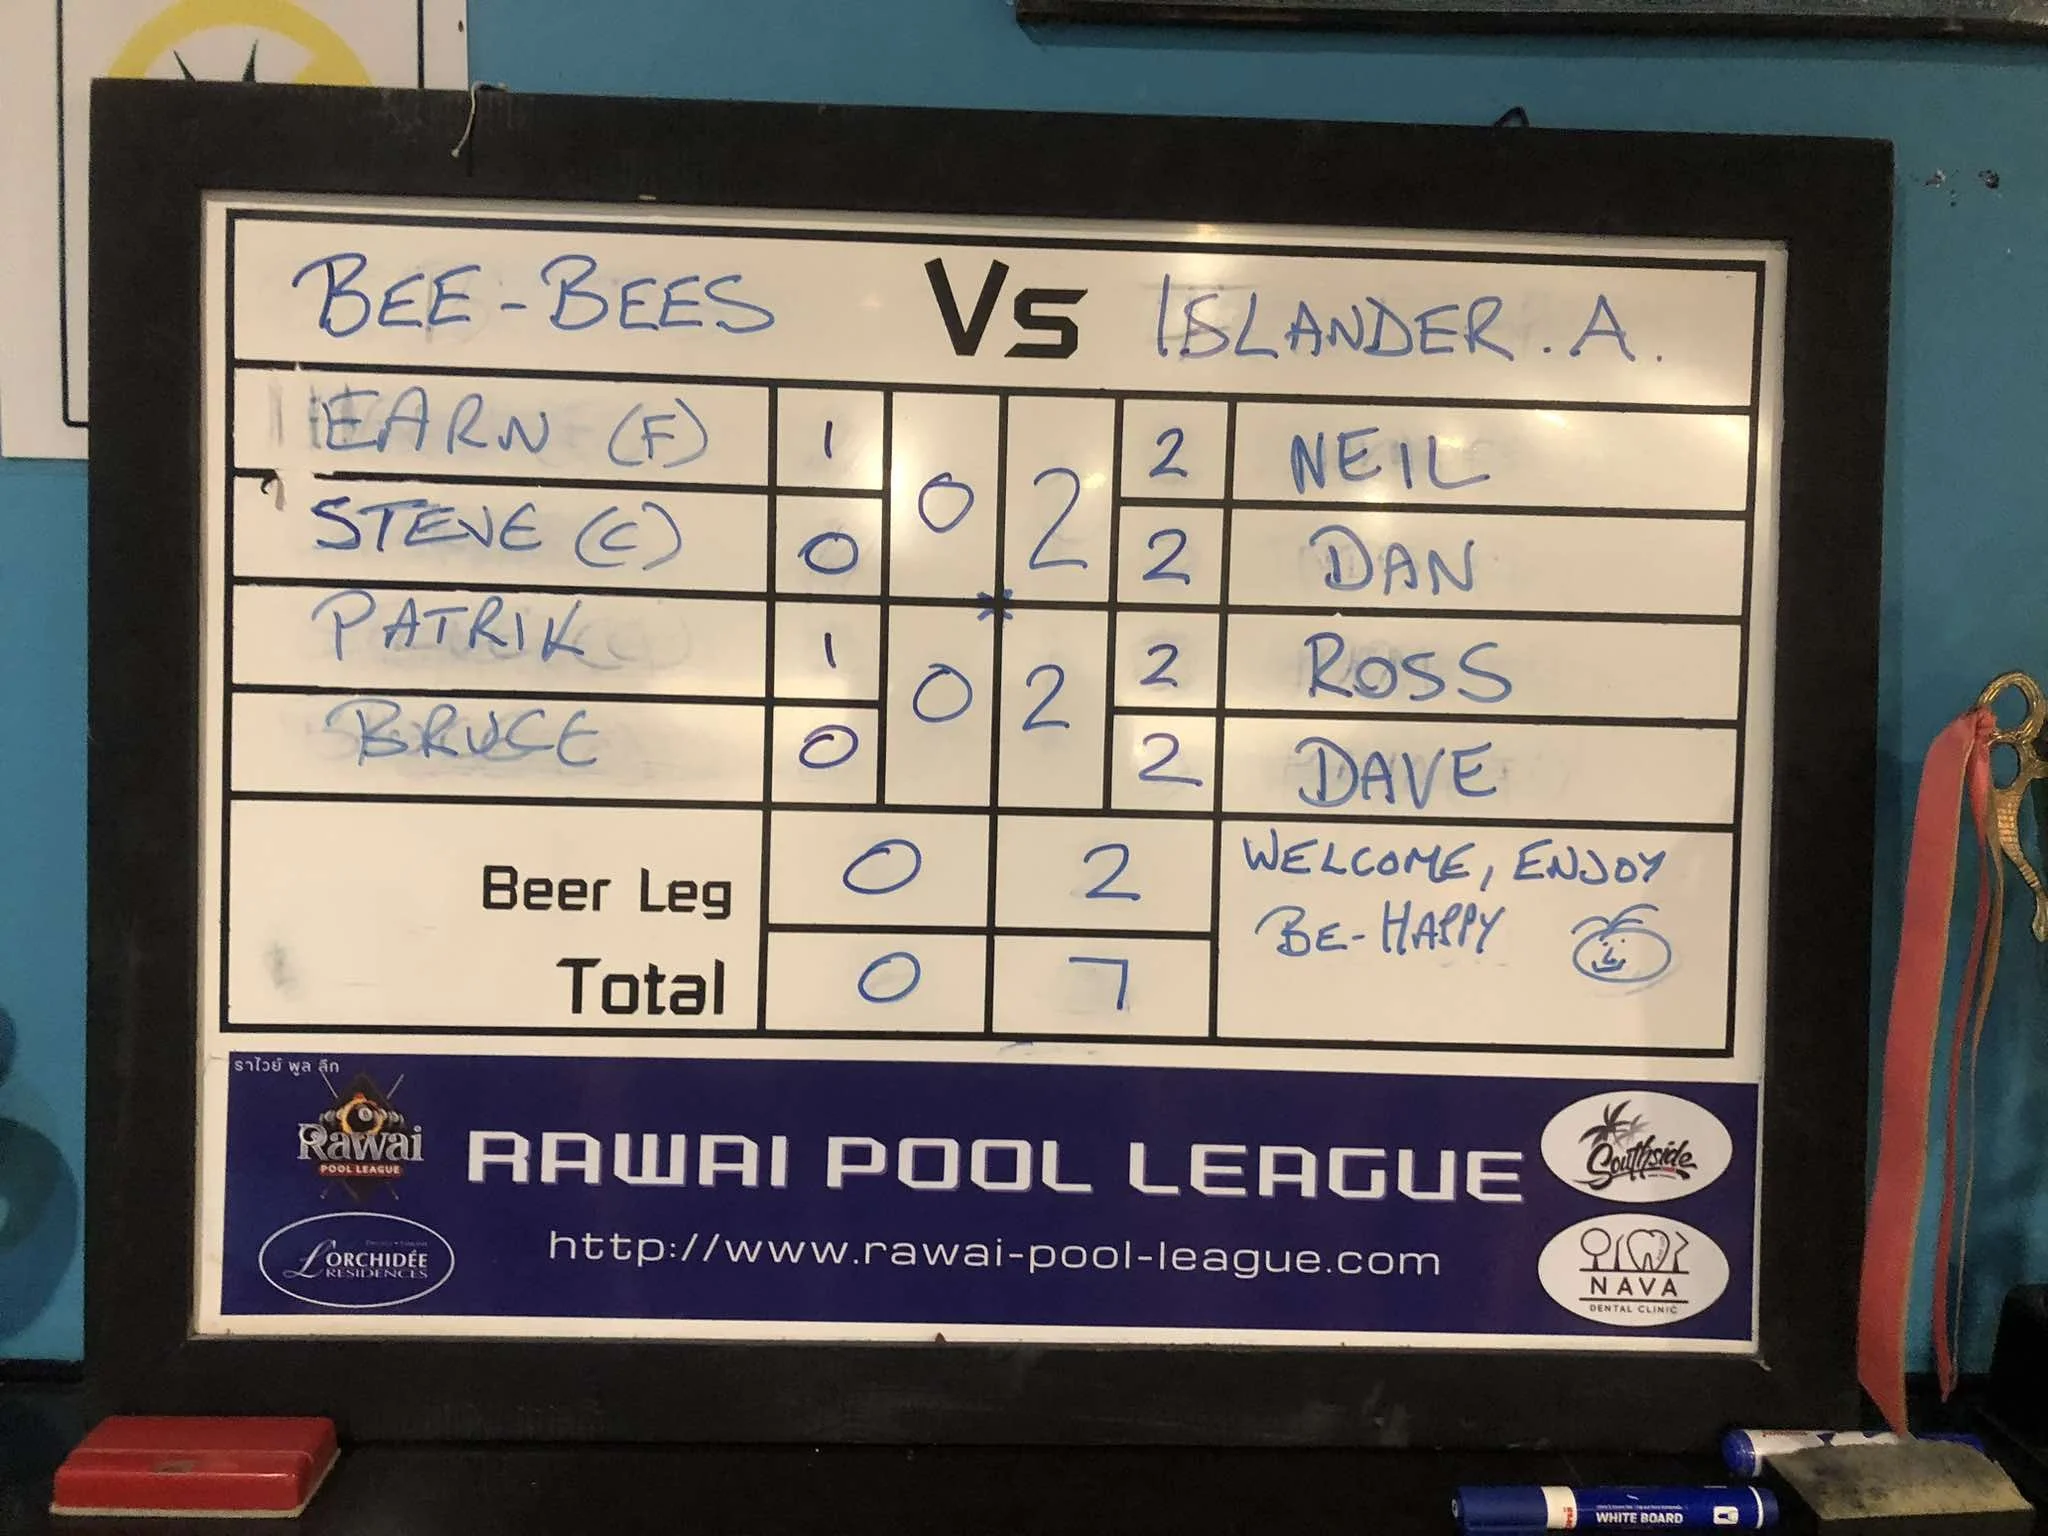 BEE-BEES Vs ISLANDER.A.
EARN (F) 1 2 NEIL
0 2
STEVE (C) 0 2 DAN
*
PATRIK 1 2 ROSS
0 2
BRUCE 0 2 DAVE
Beer Leg 0 2 WELCOME, ENJOY
BE-HAPPY
Total 0 7
ราไวย์ พูล ลีก
Rawai
POOL LEAGUE
RAWAI POOL LEAGUE
Southside
L'ORCHIDÉE
RESIDENCES
http://www.rawai-pool-league.com
NAVA
DENTAL CLINIC
WHITE BOARD